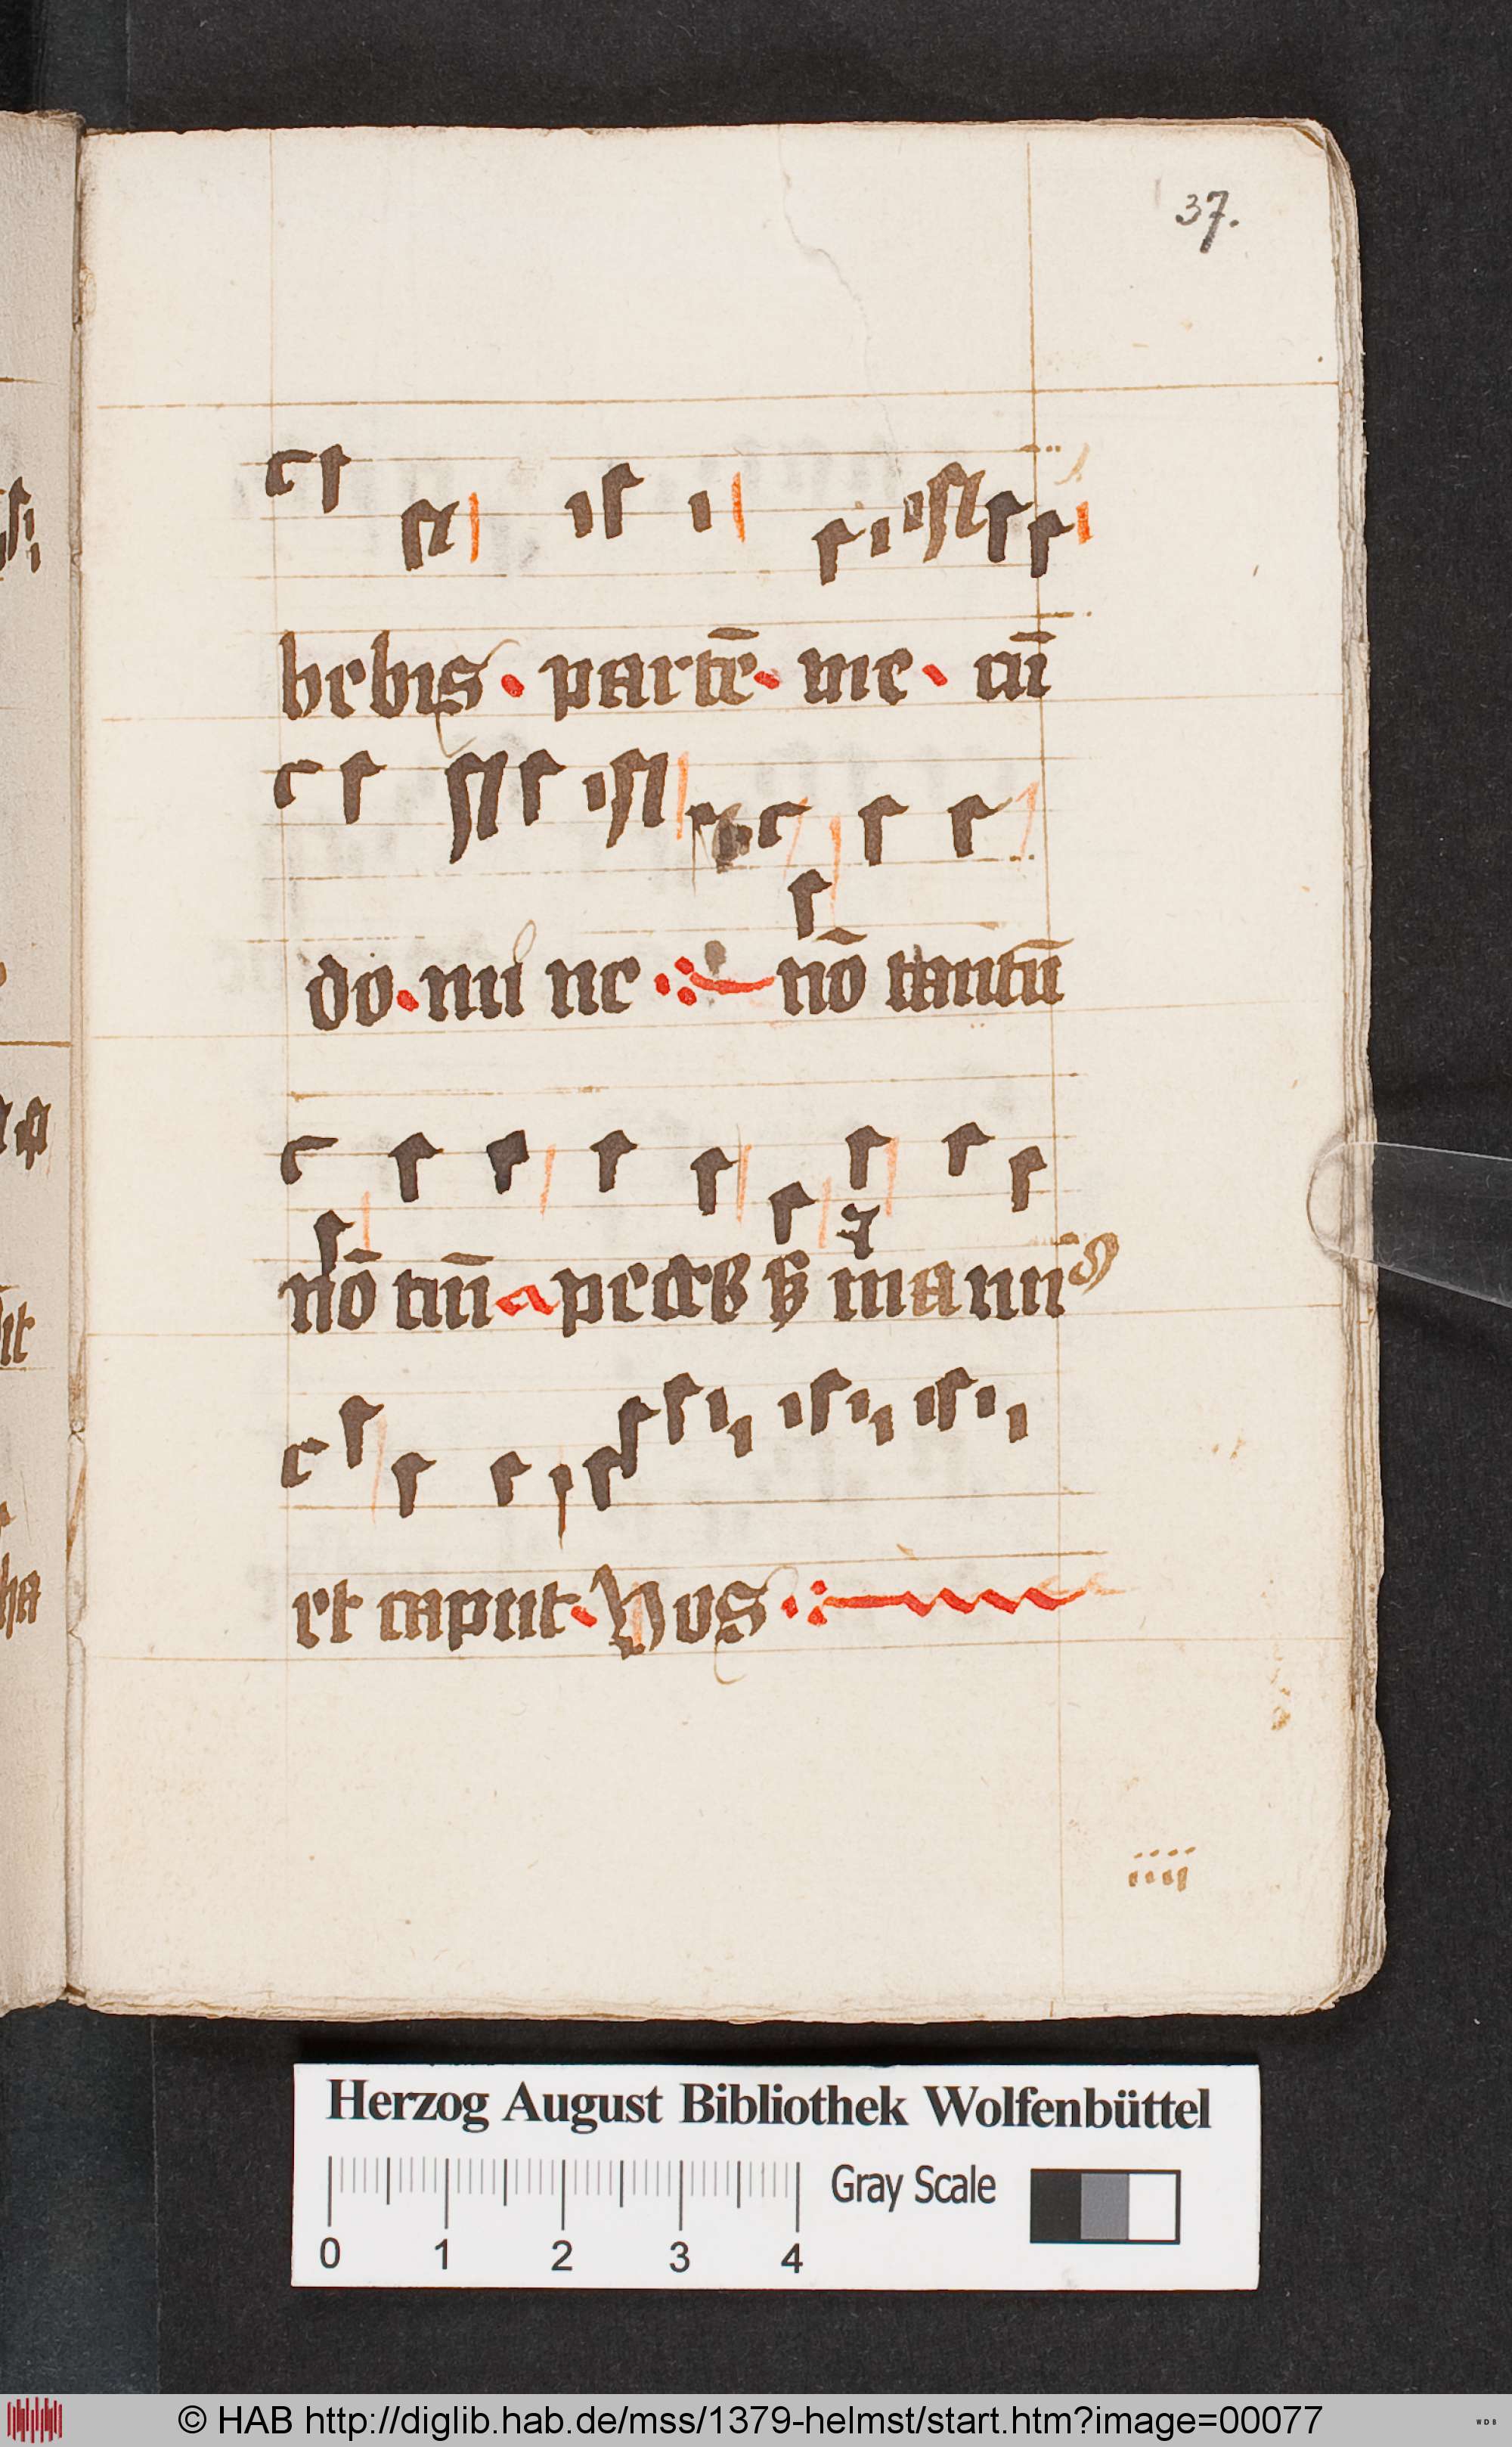 37.
hebis · partē · me · cū
do · mi ne : nō tantū
nō tm̄ pedes sꝫ mani9
et caput · Vos :
iiij
Herzog August Bibliothek Wolfenbüttel
Gray Scale
0 1 2 3 4
© HAB http://diglib.hab.de/mss/1379-helmst/start.htm?image=00077